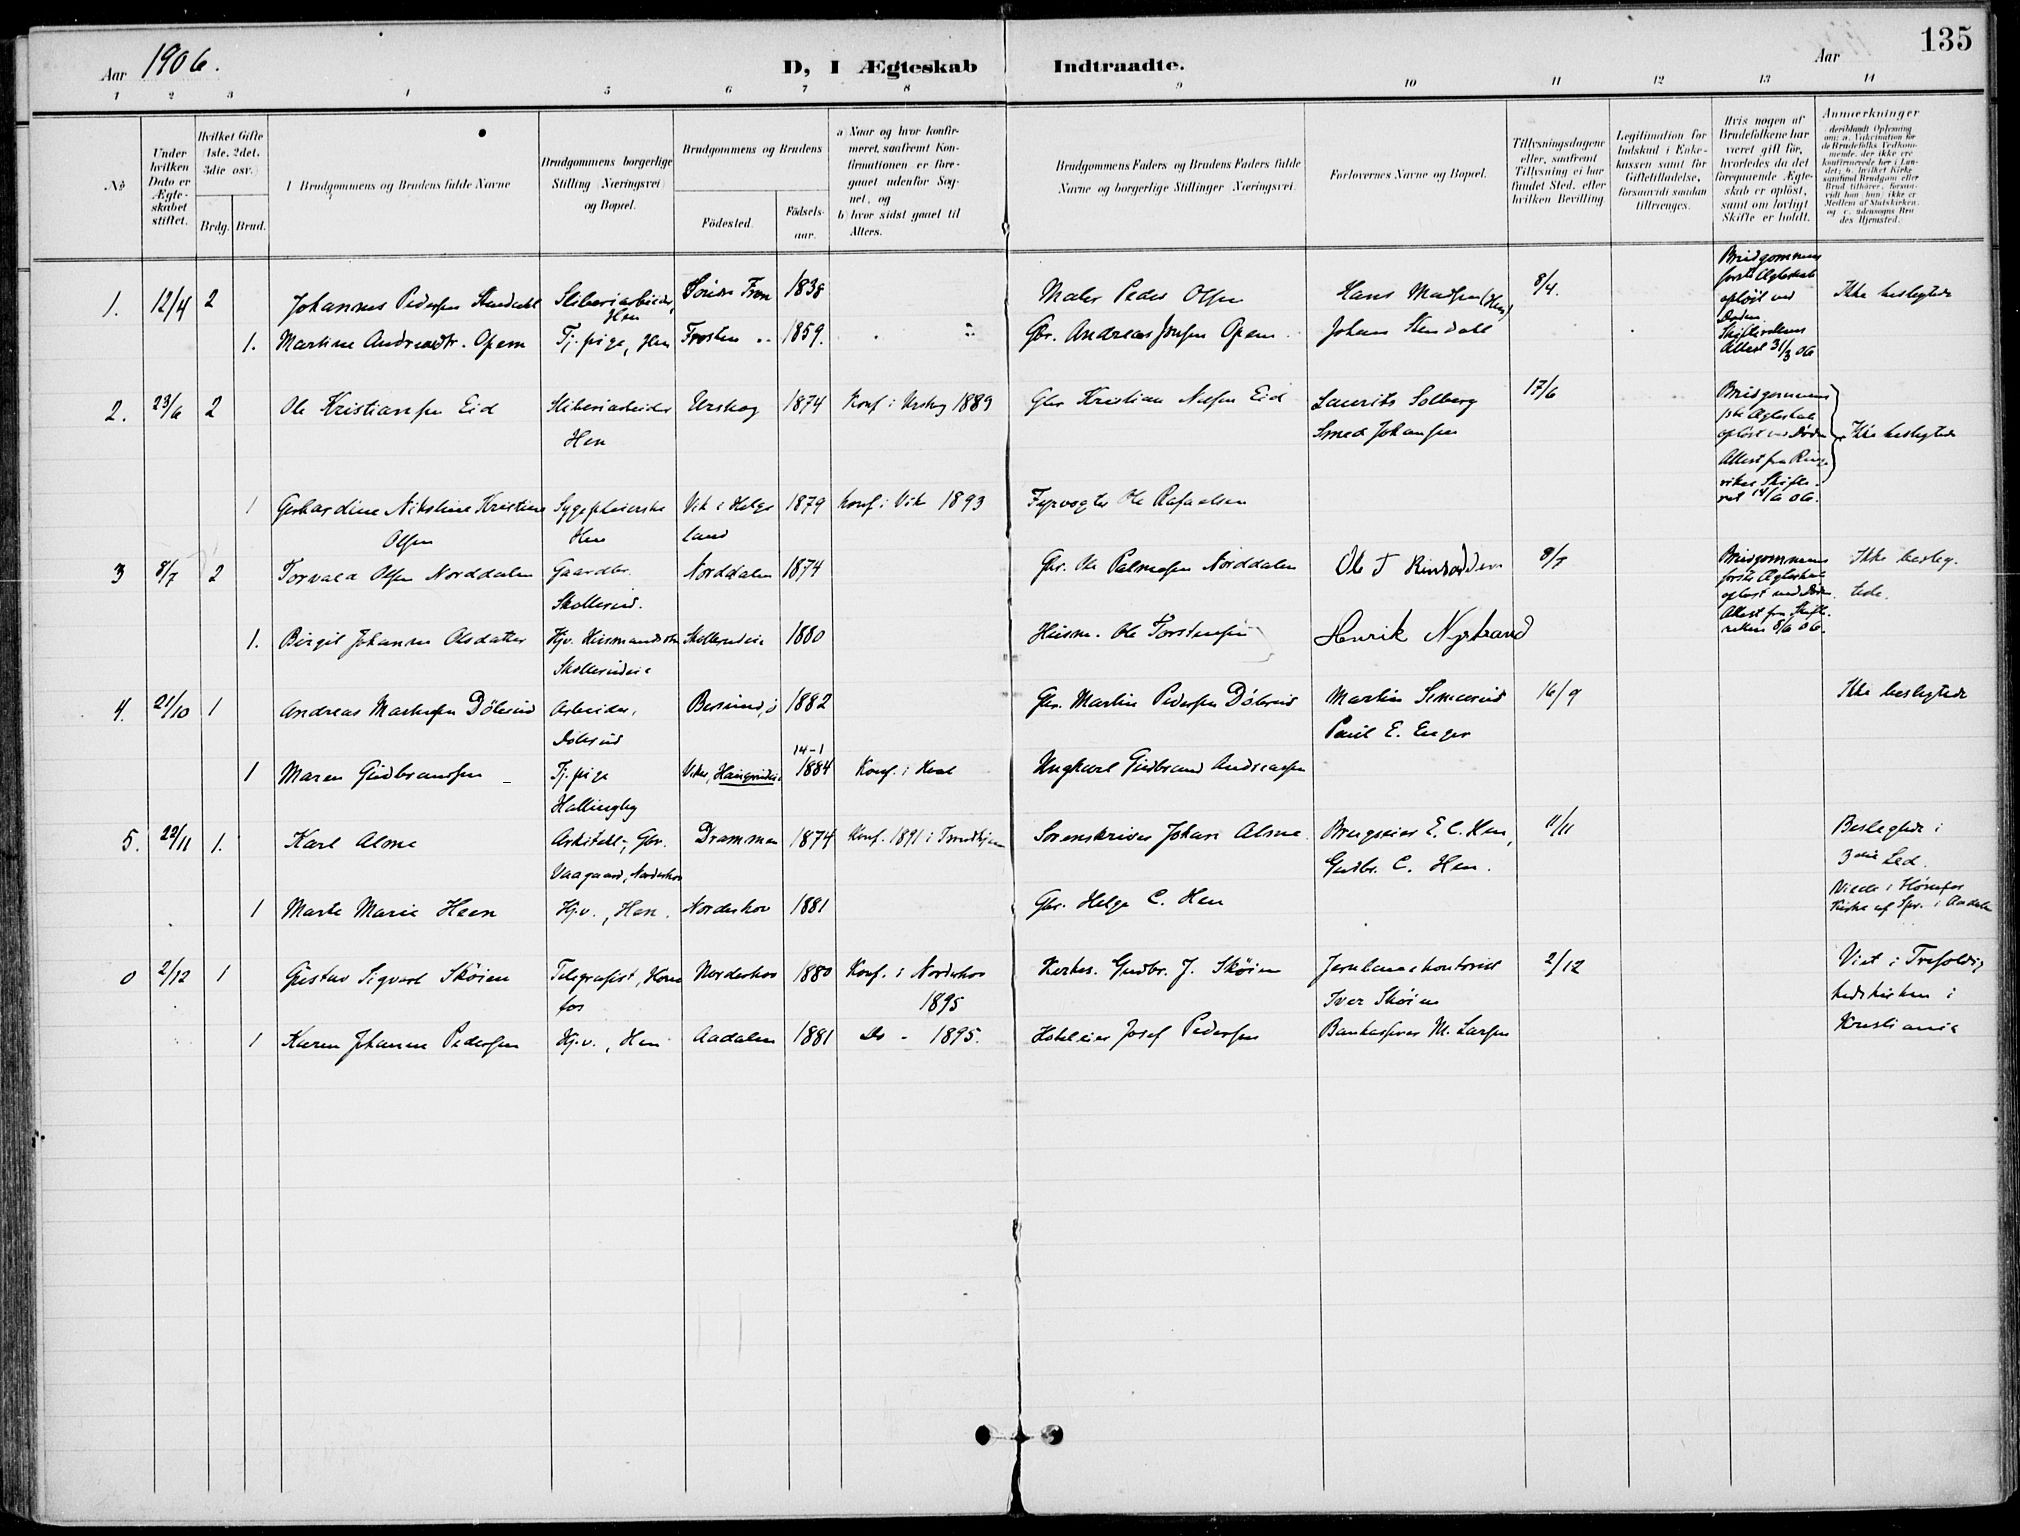 135
Aar 1906.
D, I Ægteskab Indtraadte.
Aar
1 2 3 4 5 6 7 8 9 10 11 12 13 14
No
Under hvilken Dato er Ægteskabet stiftet.
Hvilket Gifte (1ste, 2det, 3die osv.)
Brdg. Brud.
Brudgommens og Brudens fulde Navne
Brudgommens borgerlige Stilling (Næringsvei) og Bopæl.
Brudgommens og Brudens
Födested. Födselsaar.
a) Naar og hvor konfirmeret, saafremt Konfirmationen er foregaaet udenfor Sognet, og
b) hvor sidst gaaet til Alters.
Brudgommens Faders og Brudens Faders fulde Navne og borgerlige Stillinger (Næringsvei).
Forlovernes Navne og Bopæl.
Tillysningsdagene eller, saafremt Tillysning ei har fundet Sted, efter hvilken Bevilling.
Legitimation for Indskud i Enkekassen samt for Giftetilladelse, forsaavidt saadan tiltrænges.
Hvis nogen af Brudefolkene har været gift før, hvorledes da det foregaaende Ægteskab er opløst, samt om lovligt Skifte er holdt.
Anmerkninger
1. 12/4 2 Johannes Pedersen Stendahl Sliberiarbeider, Hen Søndre Fron 1838 Maler Peder Olsen Hans Madsen (Hen) 8/4. Brudgommens første Ægteskab opløst ved Døden Skifterettens Attest 31/3 06 Ikke beslegtede
1. Martine Andreasdtr. Opem Tj. pige, Hen Frosten 1859. Gbr. Andreas Jonsen Opem Johan Stendahl
2. 23/6 2 Ole Kristiansen Eid Sliberiarbeider Hen Urskog 1874 Konf i Urskog 1889 Gbr Kristian Nilsen Eid Laurits Solberg 17/6 Brudgommens Ægteskab opløst ved Døden Attest fra Ringerikes Skifteret 14/6 06. Ikke beslegtede
Smed Johansen
1 Gerhardine Nikoline Kristine Olsen Sygepleierske Hen Vik i Helgeland 1879 Konf i Vik 1893 Fyrvogter Ole Rafaelsen
3 8/7 2 Torvald Olsen Norddalen Gaardbr. Skollerud. Norddalen 1874 Gbr. Ole Palmesen Norddalen Ole T 8/7 Brudgommens første Ægteskab opløst ved Døden. Attest fra Skifteretten 8/6 06. Ikke beslegtede.
1. Birgit Johanne Olsdatter Hjv. Skollerudeie Skollerudeie 1880 Husm. Ole Torstensen Henrik Nystrand
4. 21/10 1 Andreas Martinsen Dölerud Arbeider, Dölerud 1882 Gbr. Martin Pedersen Dölerud Martin Semmerud 16/9 Ikke beslegtede
Paul E. Enger
1 Maren Gudbransen Tj. pige Hallingby Viker, 14-1 1884 Konf. i Ungkarl Gudbrand Andreassen
5. 22/11 1. Karl Alme Arkitekt, Gbr. Vaagaard, Norderhov Drammen 1874 Konf. 1891 i Trondhjem Sorenskriver Johan Alme Brugseier E. C. Hen, 11/11 Beslegtede i 3die Led.
Gudbr. C. Hen.
1 Marte Marie Heen Hj.v., Hen. Norderhov 1881 Gbr. Helge C. Hen Viede i Hønefos Kirke af Spr. i Aadalen
0 2/12 1 Gustav Sigvart Skøien Telegrafist, Hønefos Norderhov 1880 Konf. i Norderhov 1895 Gudbr. J. Skøien Jernbanekontorist 2/12 Viet i Trefoldighedskirken i Kristiania
Iver Skøien
1 Karen Johanne Pedersen Hj.v., Hen Aadalen 1881 Do - 1895. Hoteleier Josef Pedersen Bankkasserer M. Larsen